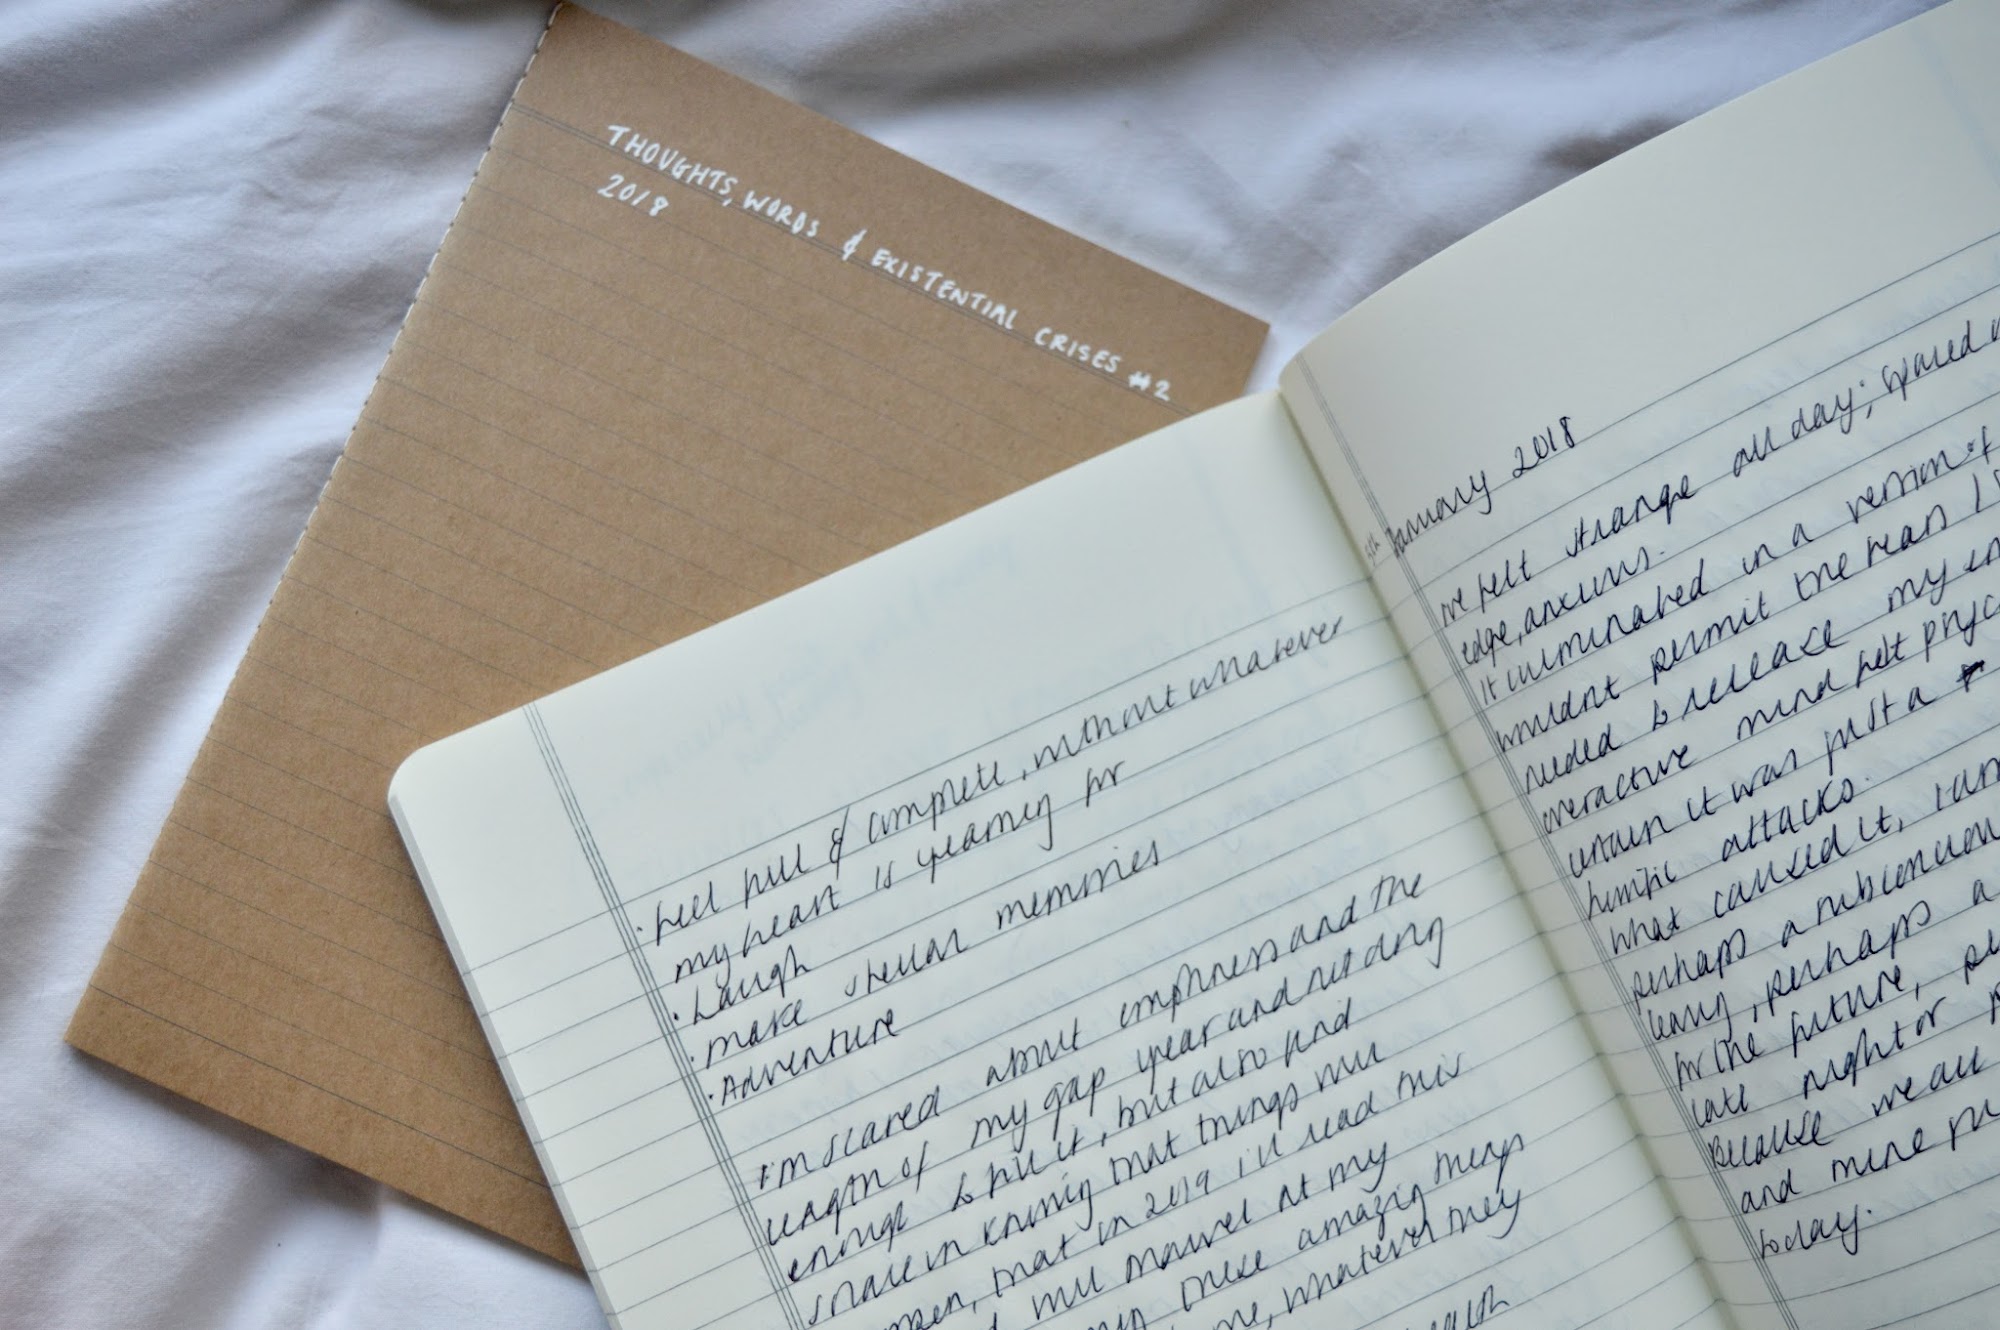 THOUGHTS, WORDS & EXISTENTIAL CRISES #2
2018
· feel full & complete, without whatever
my heart is yearning for
· Laugh
· make stellar memories
· Adventure
I'm scared about emptiness and the
length of my gap year and not doing
enough to fill it, but also find
in knowing that things will
that in 2019 I'll read this
will marvel at my
these amazing things
whatever they
5th January 2018
I've felt strange all day;
edge, anxious.
It culminated in a version of
wouldn't permit the tears I
needed to release my
overactive mind felt
certain it was just a
horrific attacks.
what caused it, I am
perhaps a subconscious
leaving, perhaps a
for the future,
late night or
Because we all
and mine
today.